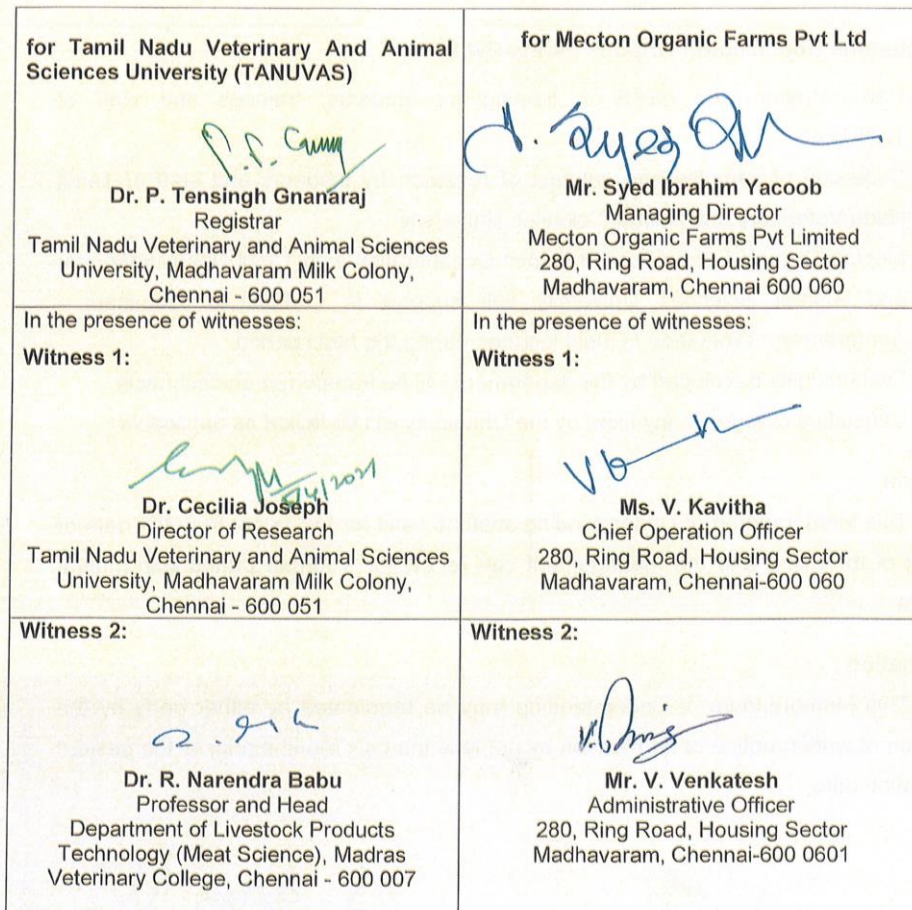 for Tamil Nadu Veterinary And Animal
Sciences University (TANUVAS)
Dr. P. Tensingh Gnanaraj
Registrar
Tamil Nadu Veterinary and Animal Sciences
University, Madhavaram Milk Colony,
Chennai - 600 051
for Mecton Organic Farms Pvt Ltd
Mr. Syed Ibrahim Yacoob
Managing Director
Mecton Organic Farms Pvt Limited
280, Ring Road, Housing Sector
Madhavaram, Chennai 600 060
In the presence of witnesses:
Witness 1:
Dr. Cecilia Joseph
Director of Research
Tamil Nadu Veterinary and Animal Sciences
University, Madhavaram Milk Colony,
Chennai - 600 051
In the presence of witnesses:
Witness 1:
Ms. V. Kavitha
Chief Operation Officer
280, Ring Road, Housing Sector
Madhavaram, Chennai-600 060
Witness 2:
Dr. R. Narendra Babu
Professor and Head
Department of Livestock Products
Technology (Meat Science), Madras
Veterinary College, Chennai - 600 007
Witness 2:
Mr. V. Venkatesh
Administrative Officer
280, Ring Road, Housing Sector
Madhavaram, Chennai-600 0601